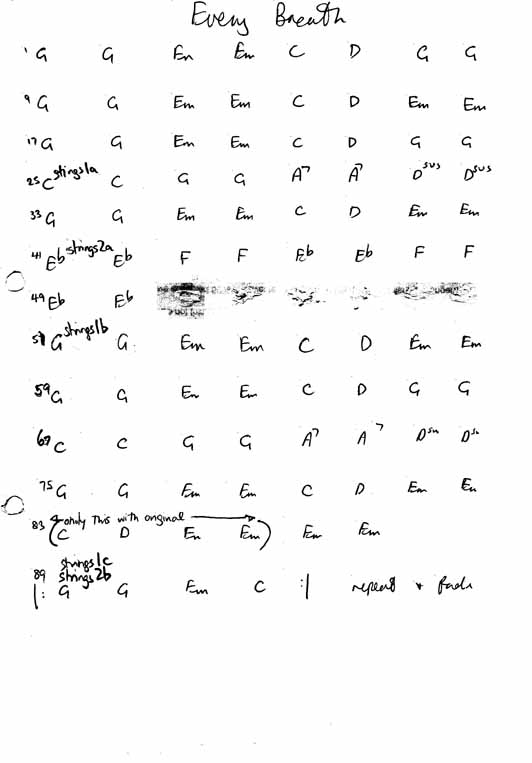 Every Breath
1 G G Em Em C D G G
9 G G Em Em C D Em Em
17 G G Em Em C D G G
25 C strings1a C G G A7 A7 Dsus Dsus
33 G G Em Em C D Em Em
41 Eb strings2a Eb F F Eb Eb F F
49 Eb Eb
51 G strings1b G Em Em C D Em Em
59 G G Em Em C D G G
C C G G A7 A7 Dsus Dsus
75 G G Em Em C D Em Em
83 only this with original
(C D Em Em) Em Em
strings1c
89 strings2b
|: G G Em C :| repeat + fade